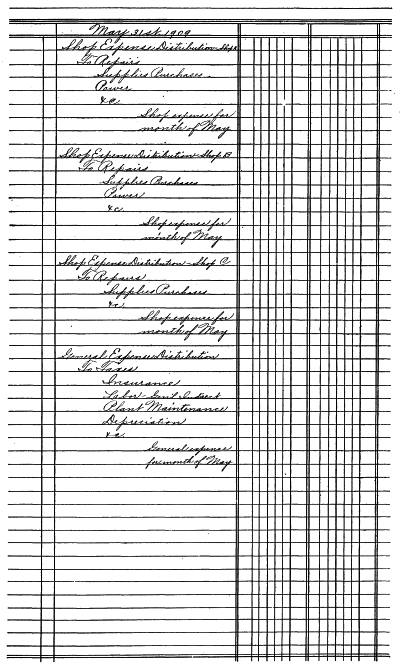 May 31st 1909
Shop Expense Distribution - Shop A
To Repairs
Supplies Purchases
Power
&c.
Shop expense for
month of May
Shop Expense Distribution - Shop B
To Repairs
Supplies Purchases
Power
&c.
Shop expense for
month of May
Shop Expense Distribution - Shop C
To Repairs
Supplies Purchases
&c.
Shop expense for
month of May
General Expense Distribution
To Taxes
Insurance
Labor - Genl Indirect
Plant Maintenance
Depreciation
&c.
General expense
for month of May